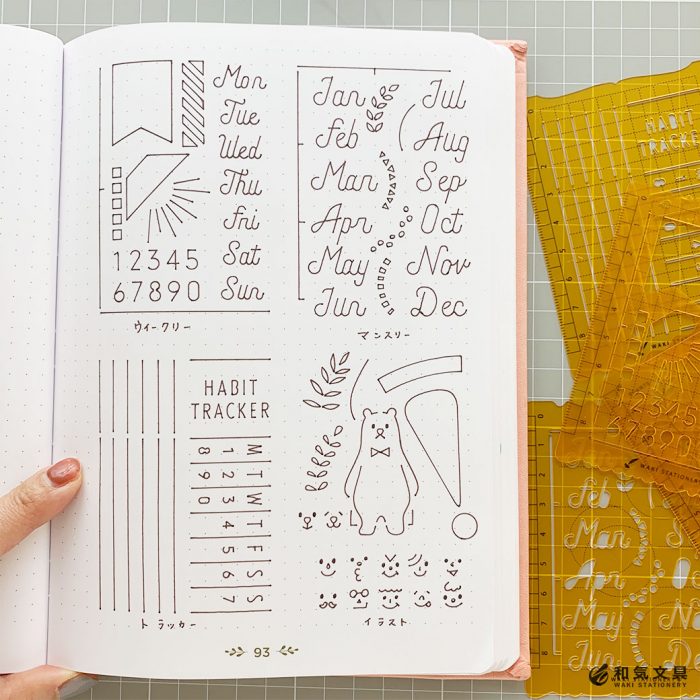 Mon
Tue
Wed
Thu
Fri
Sat
Sun
1 2 3 4 5
6 7 8 9 0
ウィークリー
Jan
Feb
Mar
Apr
May
Jun
Jul
Aug
Sep
Oct
Nov
Dec
マンスリー
HABIT
TRACKER
M T W T F S S
1 2 3 4 5 6 7
8 9 0
トラッカー
イラスト
93
HABIT
TRACKER
WAKI STATIONERY
12345
67890
WAKI STATIONERY
Feb
Mar
Apr
May
Jun
和気文具
WAKI STATIONERY